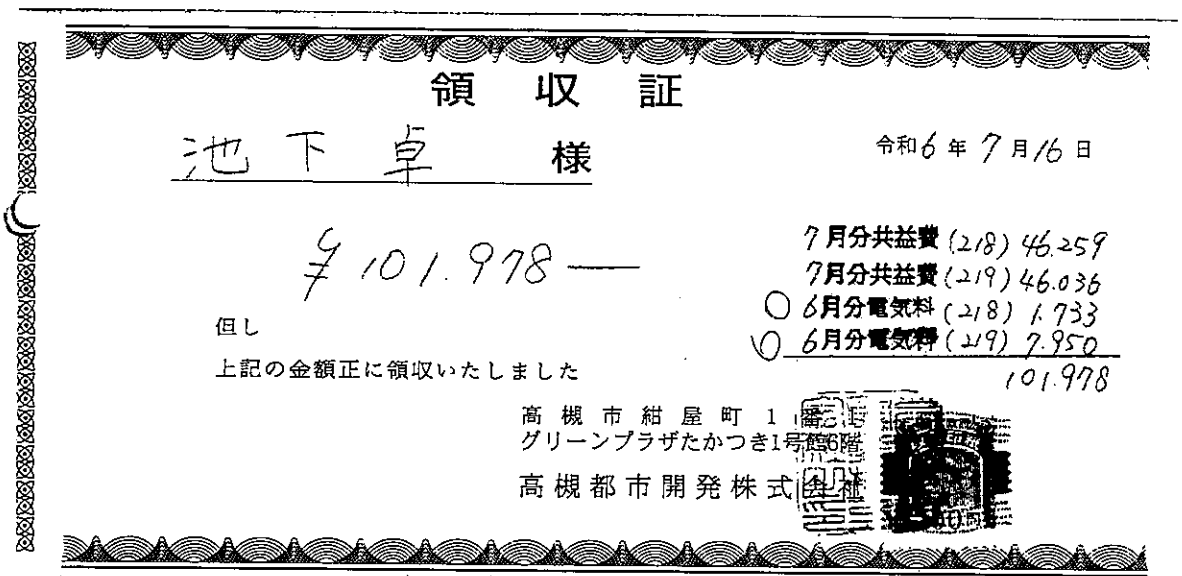 領収証
池下卓 様
令和6年7月16日
¥101.978—
7月分共益費(218) 46.259
7月分共益費(219) 46.036
6月分電気料(218) 1.733
6月分電気料(219) 7.950
101.978
但し
上記の金額正に領収いたしました
高槻市紺屋町1番1
グリーンプラザたかつき1号館6階
高槻都市開発株式会社